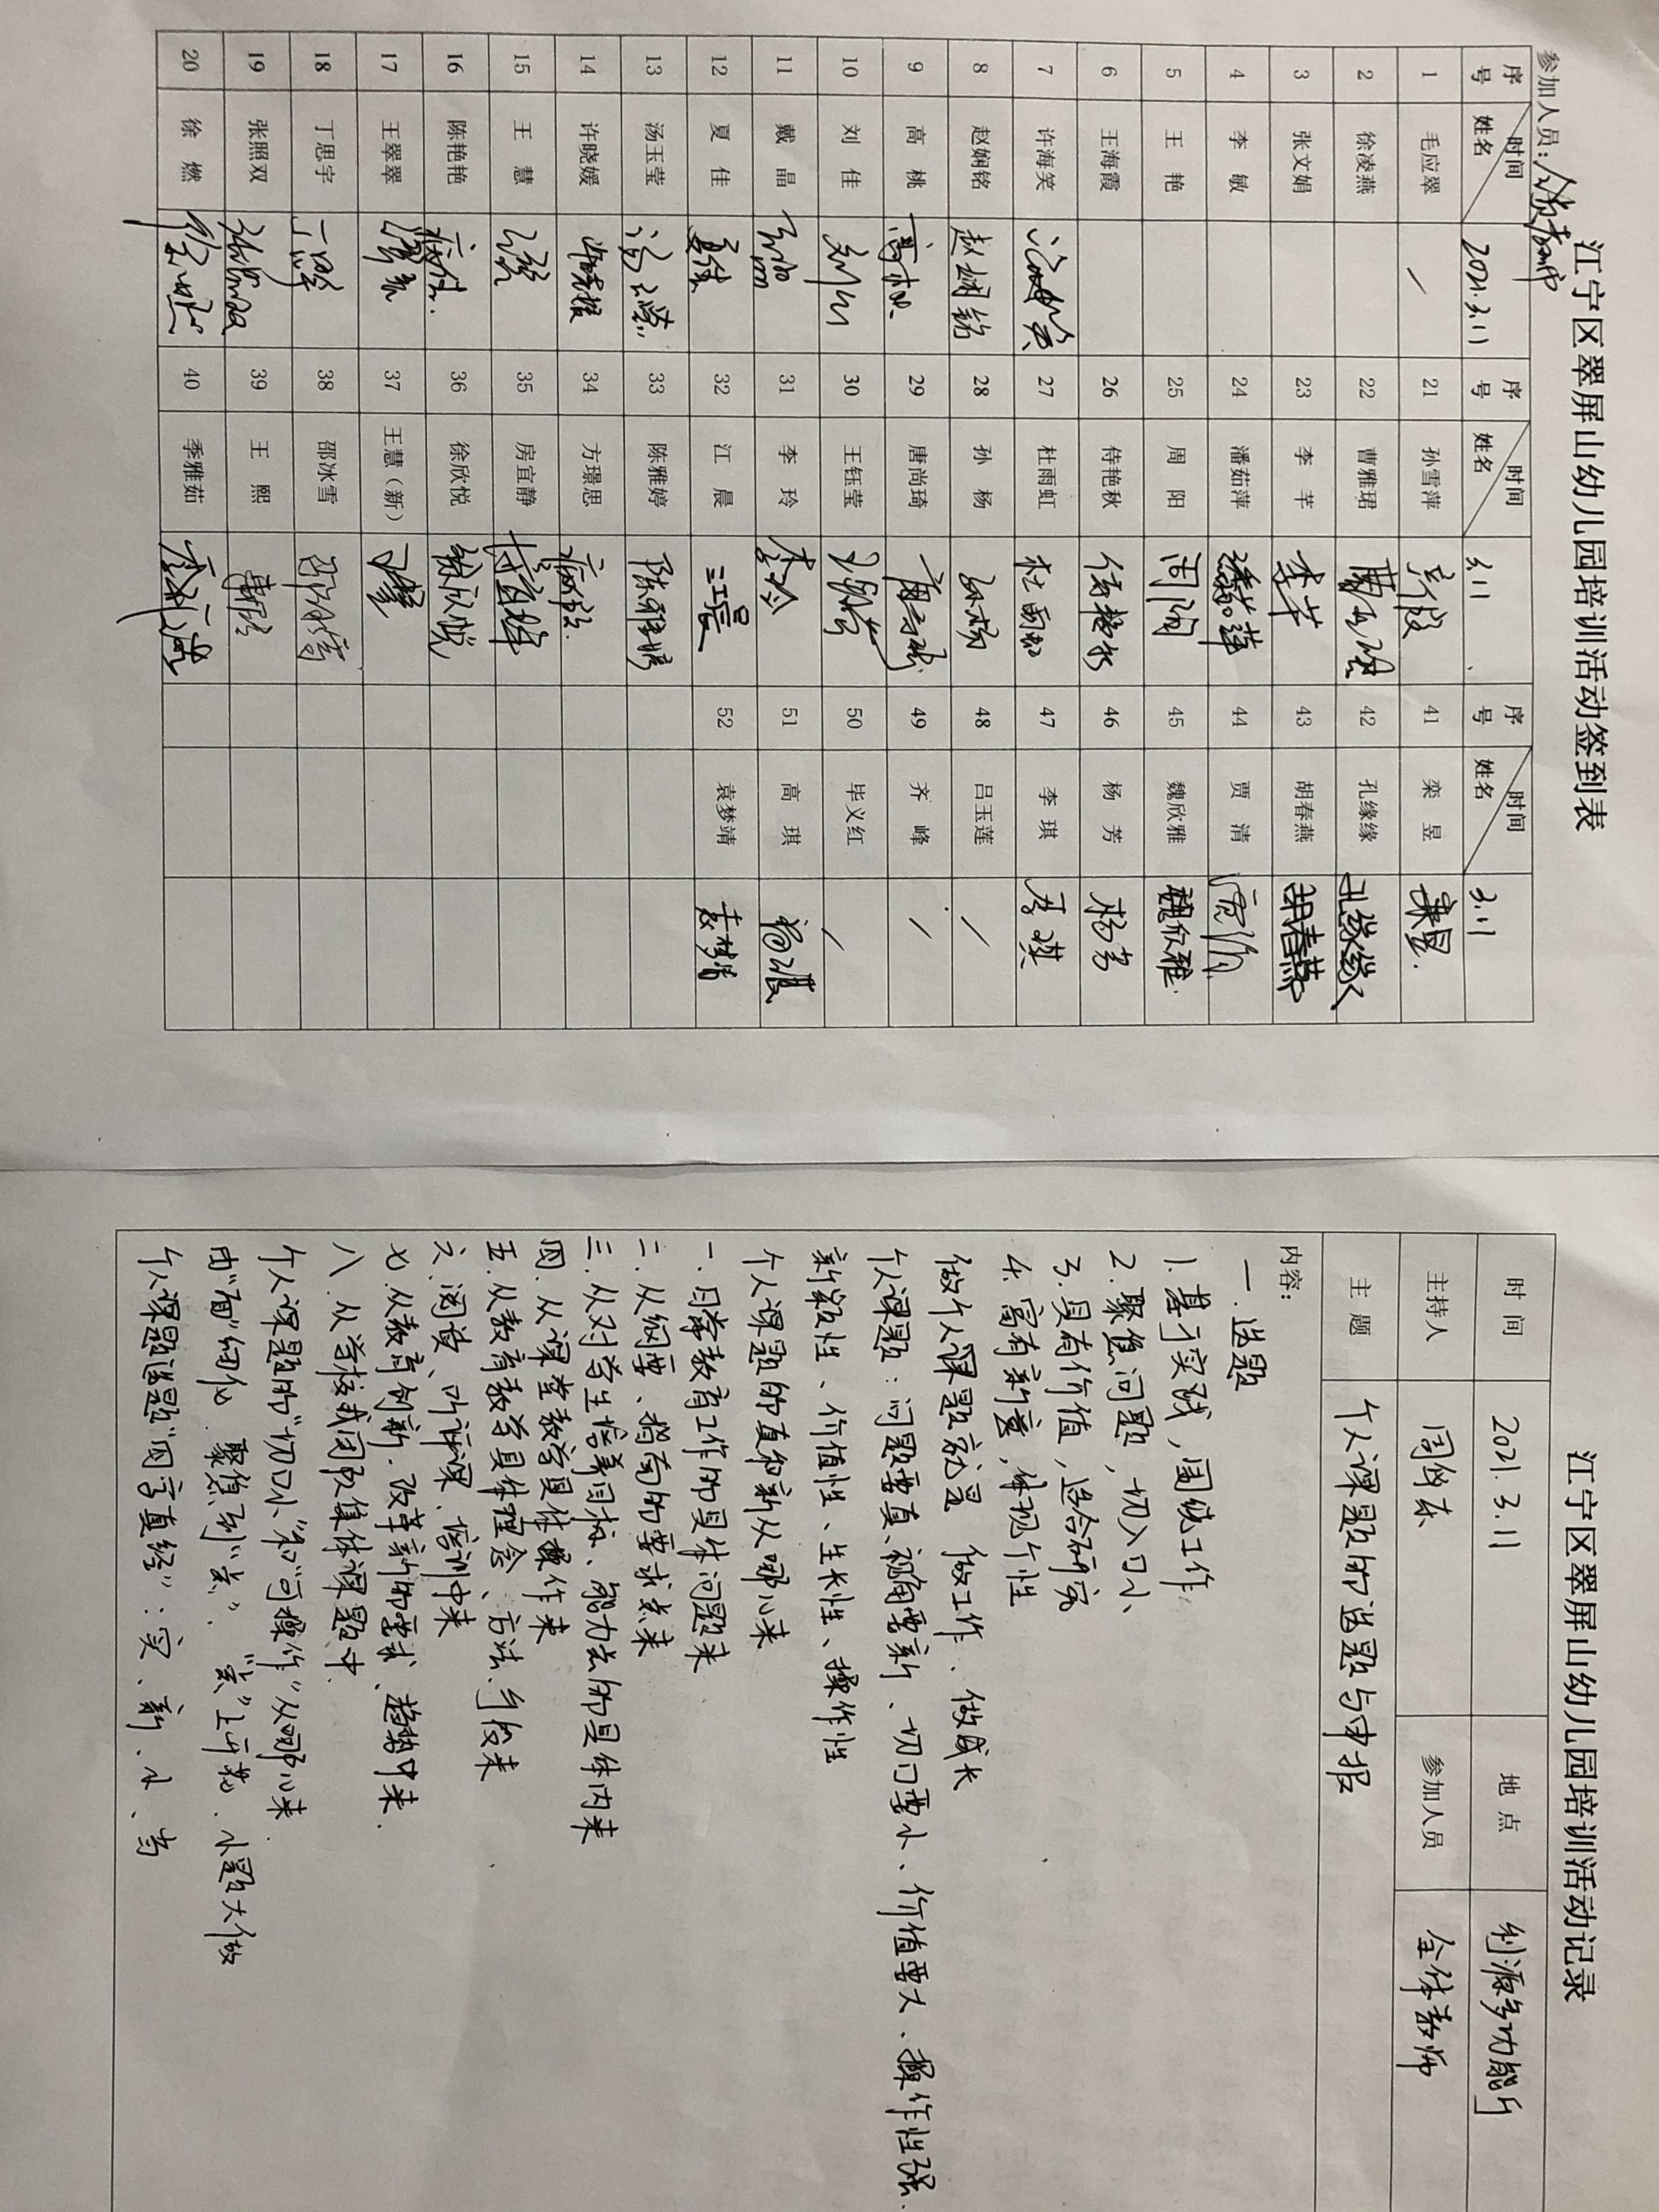 江宁区翠屏山幼儿园培训活动签到表
参加人员：全体教师
序号 时间 姓名 2021.3.11 序号 时间 姓名 3.11 序号 时间 姓名 3.11
1 毛应翠 / 21 孙雪萍 41 栾昱 栾昱
2 徐凌燕 22 曹雅珺 曹雅珺 42 孔缘缘 孔缘缘
3 张文娟 23 李芊 李芊 43 胡春燕 胡春燕
4 李敏 24 潘茹萍 潘茹萍 44 贾清 贾清
5 王艳 25 周阳 周阳 45 魏欣雅 魏欣雅
6 王海霞 26 侍艳秋 侍艳秋 46 杨芳 杨芳
7 许海笑 许海笑 27 杜雨虹 杜雨虹 47 李琪 李琪
8 赵娴铭 赵娴铭 28 孙杨 孙杨 48 吕玉莲 /
9 高桃 高桃 29 唐尚琦 唐尚琦 49 齐峰 /
10 刘佳 刘佳 30 王钰莹 王钰莹 50 毕义红 /
11 戴晶 31 李玲 李玲 51 高琪
12 夏佳 夏佳 32 江晨 江晨 52 袁梦靖 袁梦靖
13 汤玉莹 汤玉莹 33 陈雅婷 陈雅婷
14 许晓媛 许晓媛 34 方璟思 病假
15 王慧 王慧 35 房宜静 房宜静
16 陈艳艳 病假 36 徐欣悦 徐欣悦
17 王翠翠 37 王慧（新） 王慧
18 丁思宇 丁思宇 38 邵冰雪 邵冰雪
19 张照双 张照双 39 王熙
20 徐燃 徐燃 40 季雅茹 季雅茹
江宁区翠屏山幼儿园培训活动记录
时间 2021.3.11 地点 利源多功能厅
主持人 参加人员 全体教师
主题 个人课题的选题与申报
内容：
一.选题
1.基于实践，围绕工作
2.聚焦问题，切入口小
3.具有价值，适合研究
4.富有新意，体现个性
做个人课题就是 做工作、做成长
个人课题：问题要真、视角要新、切口要小、价值要大、操作性强.
新颖性、价值性、生长性、操作性
个人课题的真和新从哪儿来
一.日常教育工作的具体问题来
二.从纲要、指南的要求点来
三.从对学生培养目标、能力点的具体内来
四.从课堂教学具体操作来
五.从教育教学具体理念、方法、手段来
六.阅读、听评课、培训中来
七.从教育创新.改革新的要求、趋势中来.
八.从学校或团队集体课题中.
个人课题的“切口小”和“可操作”从哪儿来.
由“面”细化.聚焦到“点”.“点”上开花.小题大做
个人课题选题“四字真经”：实、新、小、当